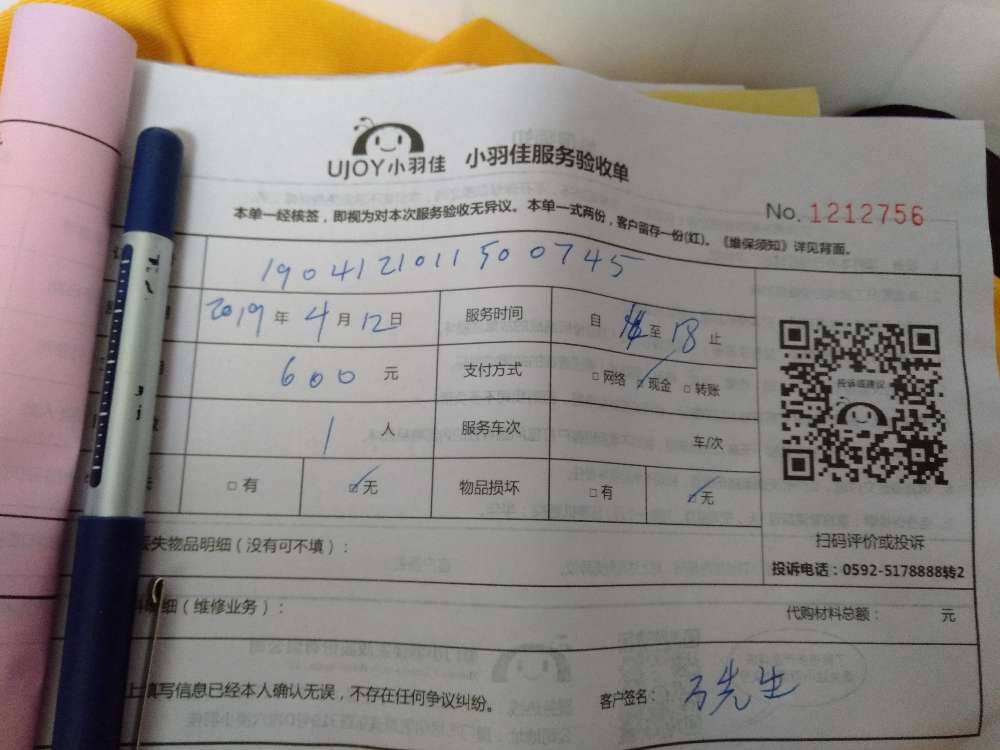 UJOY小羽佳 小羽佳服务验收单
No. 1212756
本单一经核签，即视为对本次服务验收无异议。本单一式两份，客户留存一份(红)。《维保须知》详见背面。
1904121011500745
2019年 4月 12日 服务时间 自 至 18 止
600 元 支付方式 □网络 ☑现金 □转账
1 人 服务车次 车/次
□有 ☑无 物品损坏 □有 ☑无
投诉或建议
扫码评价或投诉
投诉电话：0592-5178888转2
失物品明细（没有可不填）：
细（维修业务）： 代购材料总额： 元
上填写信息已经本人确认无误，不存在任何争议纠纷。 客户签名： 先生